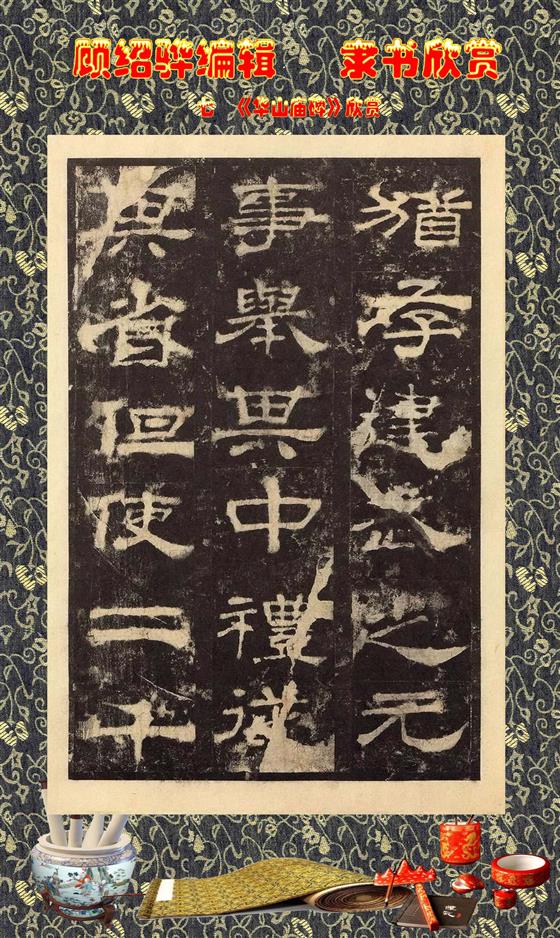 顾绍骅编辑 隶书欣赏
《华山庙碑》欣赏
猶存建武之元
事舉其中禮從
其省但使二千